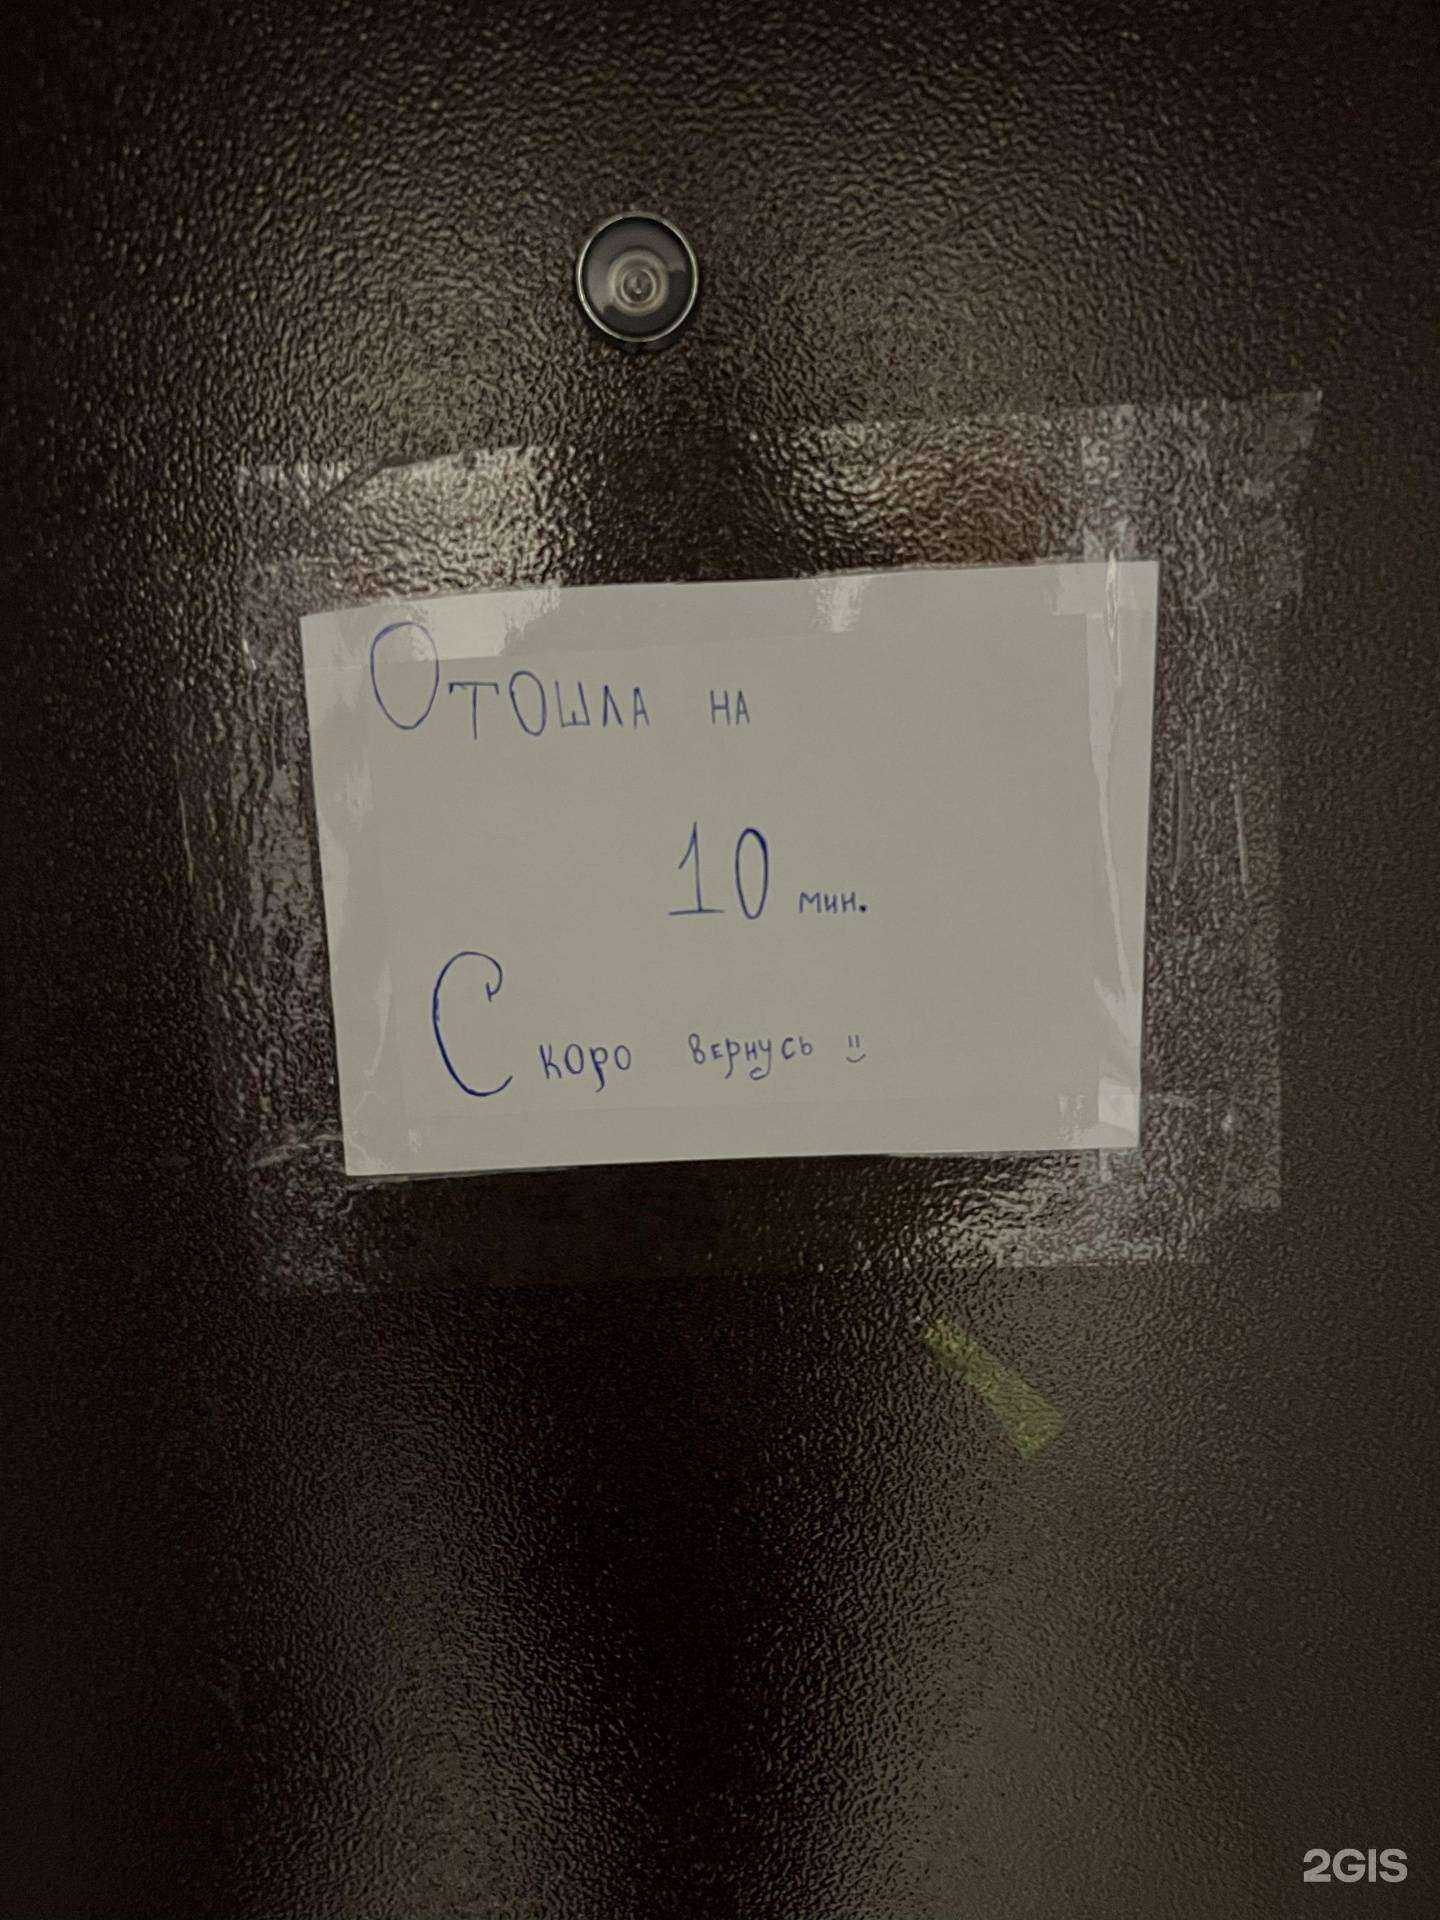 Отошла на
10 мин.
Скоро вернусь
2GIS